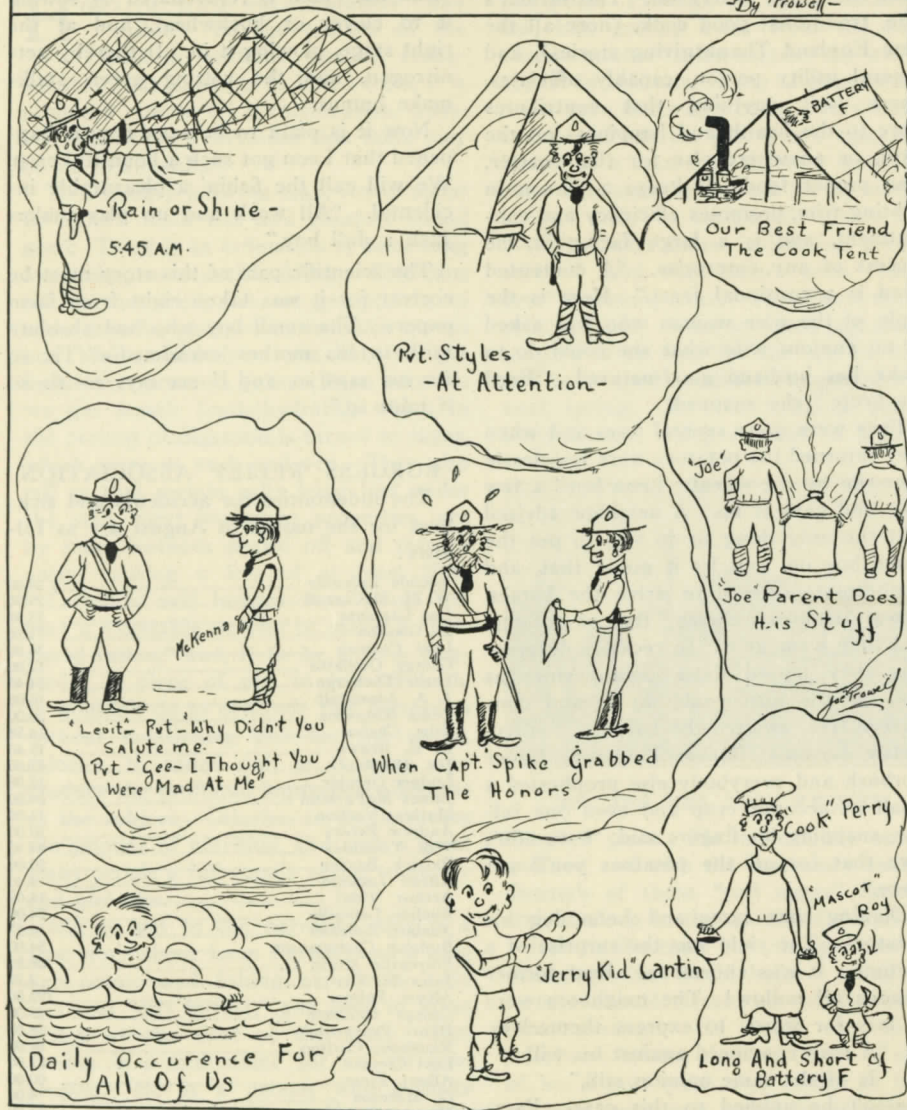 -By Trowell-
-Rain or Shine-
5:45 A.M.
Pvt. Styles
-At Attention-
BATTERY
F
Our Best Friend
The Cook Tent
McKenna
"Leoit"- Pvt-"Why Didn't You
Salute me."
Pvt-"Gee-I Thought You
Were Mad At Me"
When Capt. Spike Grabbed
The Honors
"Joe"
"Joe" Parent Does
His Stuff
Joe Trowell
Daily Occurence For
All Of Us
"Jerry Kid" Cantin
"Cook" Perry
"MASCOT"
ROY
Long And Short of
Battery F